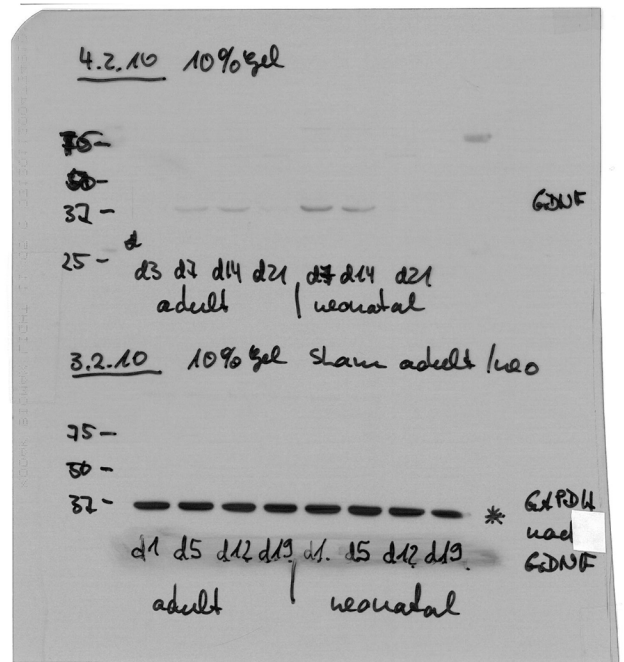 4.2.10 10% gel
75 -
50 -
37 - GDNF
25 -
d3 d7 d14 d21 d7 d14 d21
adult | neonatal
3.2.10 10% gel Sham adult / neo
75 -
50 -
37 - * GAPDH
nach
d1 d5 d12 d19 d1. d5 d12 d19. GDNF
adult | neonatal